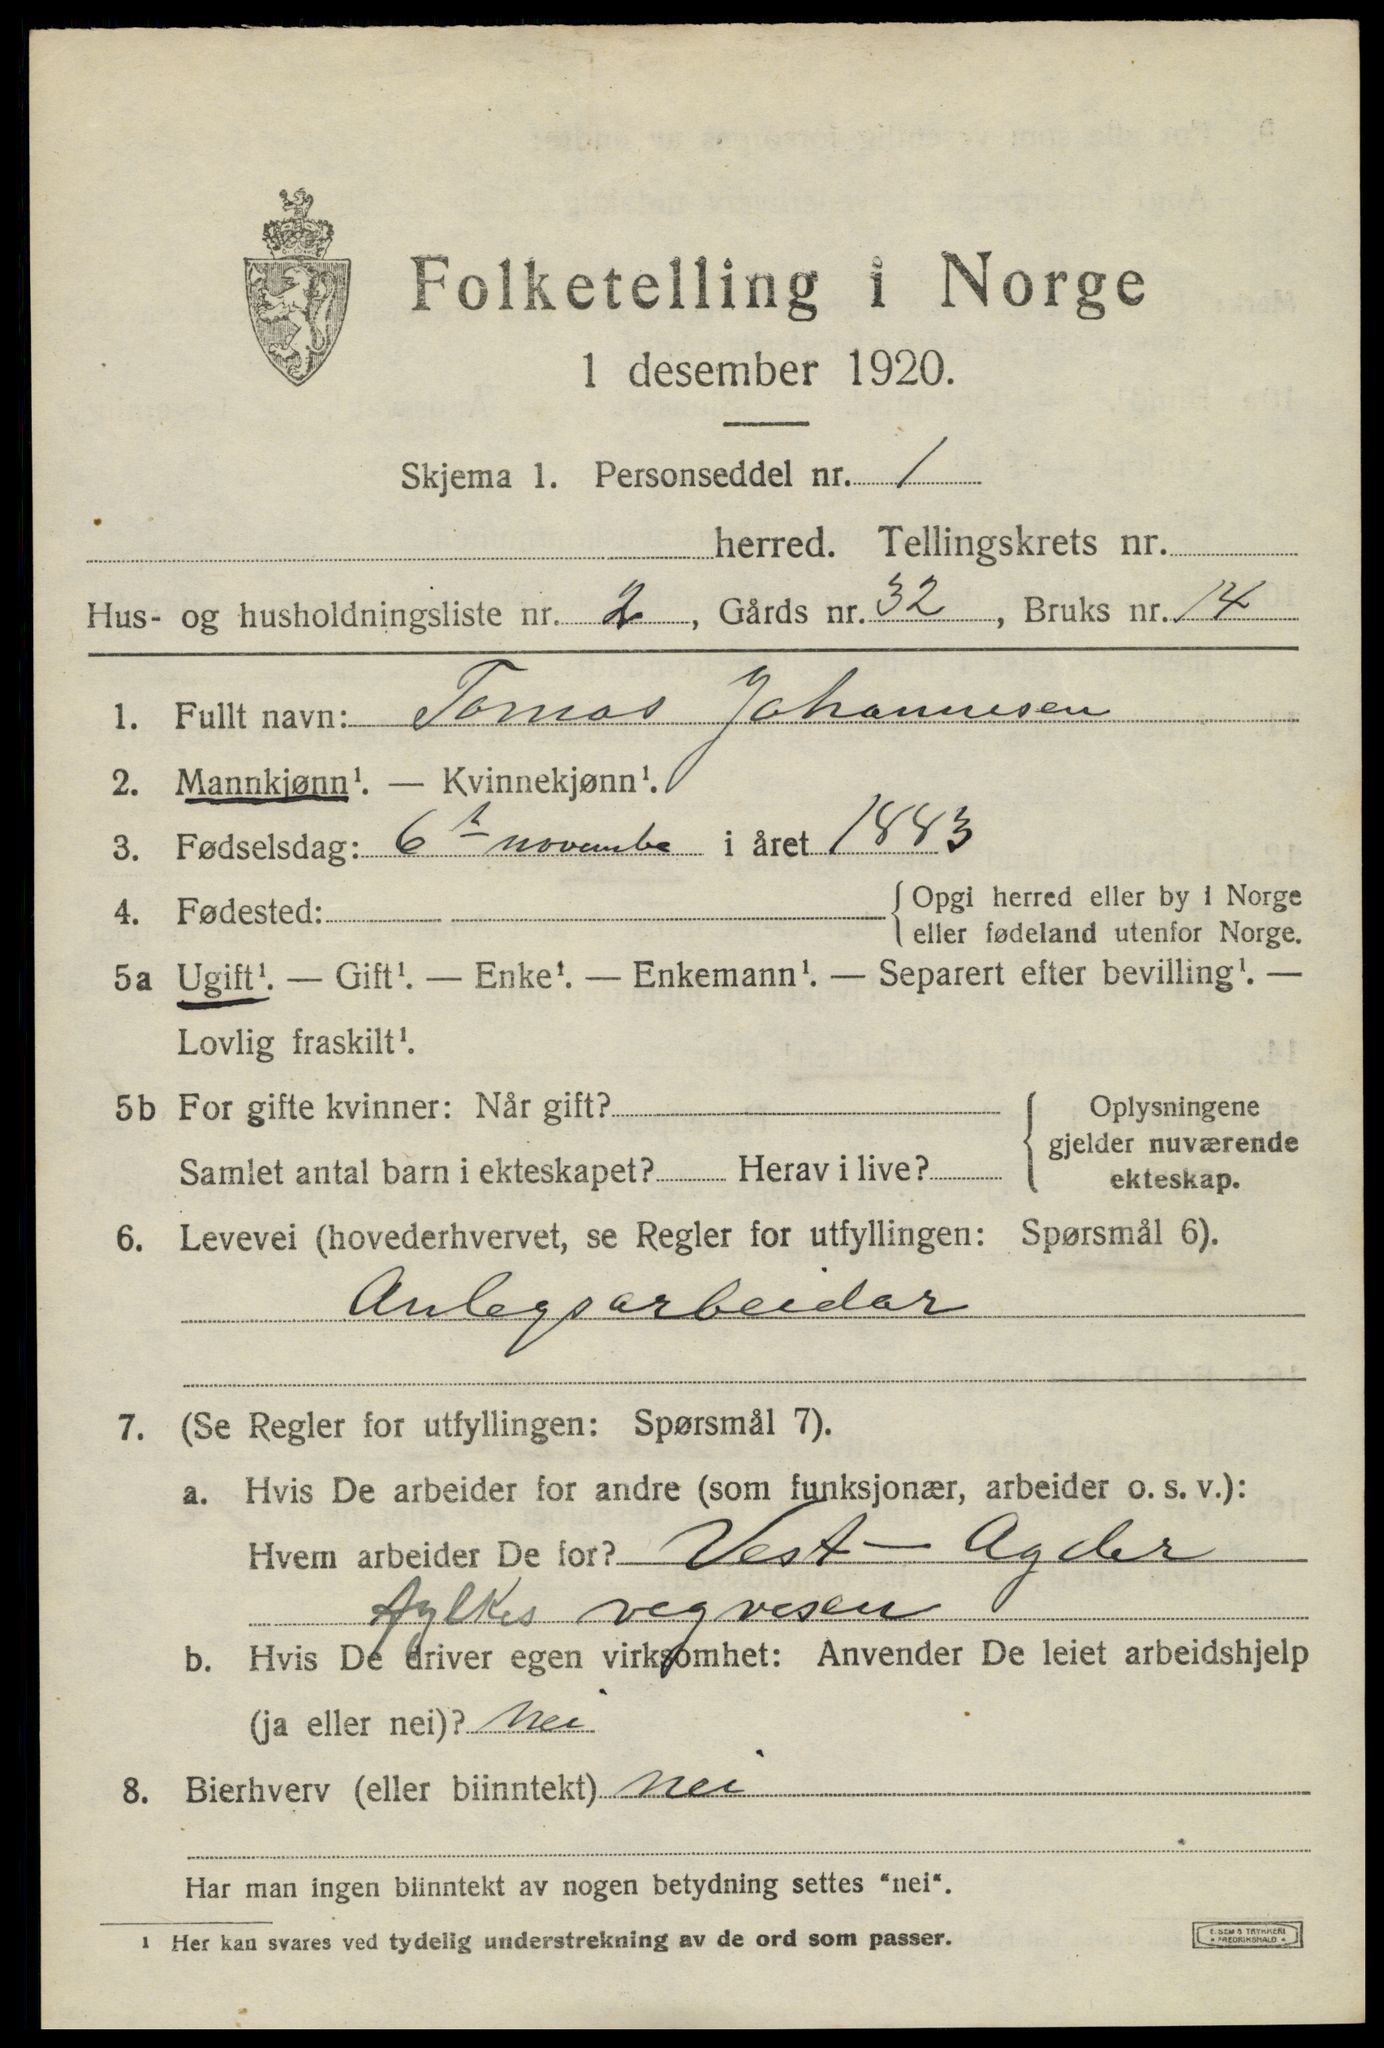 Folketelling i Norge
1 desember 1920.
Skjema 1. Personseddel nr. 1
herred. Tellingskrets nr.
Hus- og husholdningsliste nr. 2, Gårds nr. 32, Bruks nr. 14
1. Fullt navn: Tomas Johannesen
2. Mannkjønn¹. — Kvinnekjønn¹.
3. Fødselsdag: 6t novembe i året 1883
4. Fødested: { Opgi herred eller by i Norge
eller fødeland utenfor Norge.
5a Ugift¹. — Gift¹. — Enke¹. — Enkemann¹. — Separert efter bevilling¹. —
Lovlig fraskilt¹.
5b For gifte kvinner: Når gift? { Oplysningene
gjelder nuværende
Samlet antal barn i ekteskapet? Herav i live? ekteskap.
6. Levevei (hovederhvervet, se Regler for utfyllingen: Spørsmål 6).
Anlegsarbeidar
7. (Se Regler for utfyllingen: Spørsmål 7).
a. Hvis De arbeider for andre (som funksjonær, arbeider o. s. v.):
Hvem arbeider De for? Vest-Agder
fylkes vegvesen
b. Hvis De driver egen virksomhet: Anvender De leiet arbeidshjelp
(ja eller nei)? nei
8. Bierhverv (eller biinntekt) nei
Har man ingen biinntekt av nogen betydning settes "nei".
¹ Her kan svares ved tydelig understrekning av de ord som passer.
E. SEM'S TRYKKERI
FREDRIKSHALD